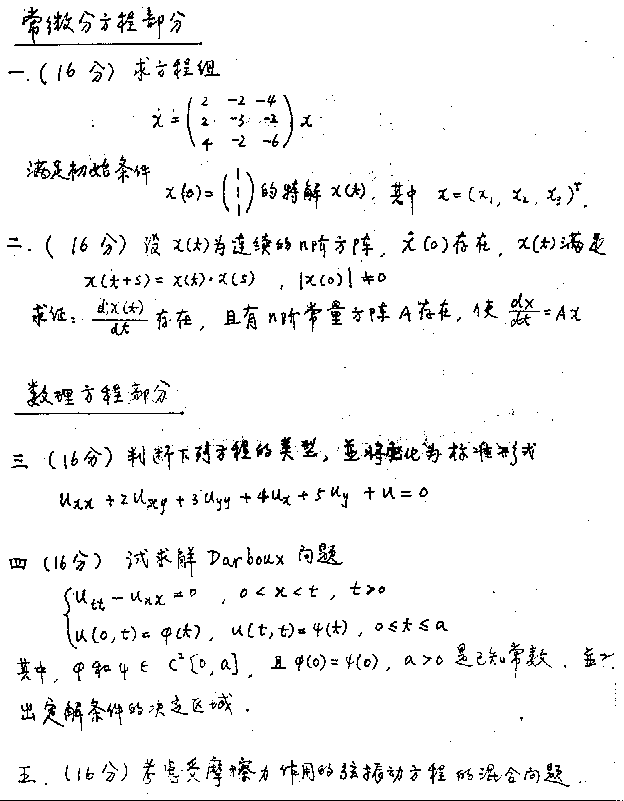 常微分方程部分
一.(16分) 求方程组
ẋ = ( 2 -2 -4
2 -3 -2
4 -2 -6 ) x
满足初始条件
x(0) = ( 1 1 1 ) 的特解 x(t), 其中 x = (x₁, x₂, x₃)ᵀ.
二.( 16分) 设 x(t)为连续的n阶方阵, ẋ(0)存在, x(t)满足
x(t+s) = x(t)·x(s) , |x(0)| ≠ 0
求证: dx(t)/dt 存在, 且有n阶常量方阵A存在, 使 dx/dt = Ax
数理方程部分
三 (16分) 判断下列方程的类型, 并将它化为标准形式
Uxx + 2Uxy + 3Uyy + 4Ux + 5Uy + U = 0
四 (16分) 试求解 Darboux 问题
{ Utt - Uxx = 0 , 0 < x < t , t > 0
U(0,t) = φ(t), U(t,t) = ψ(t), 0 ≤ t ≤ a
其中, φ和ψ ∈ C²[0,a], 且 φ(0) = ψ(0), a > 0 是已知常数. 並
出定解条件的决定区域.
五. (16分) 考虑受摩擦力作用的弦振动方程的混合问题.